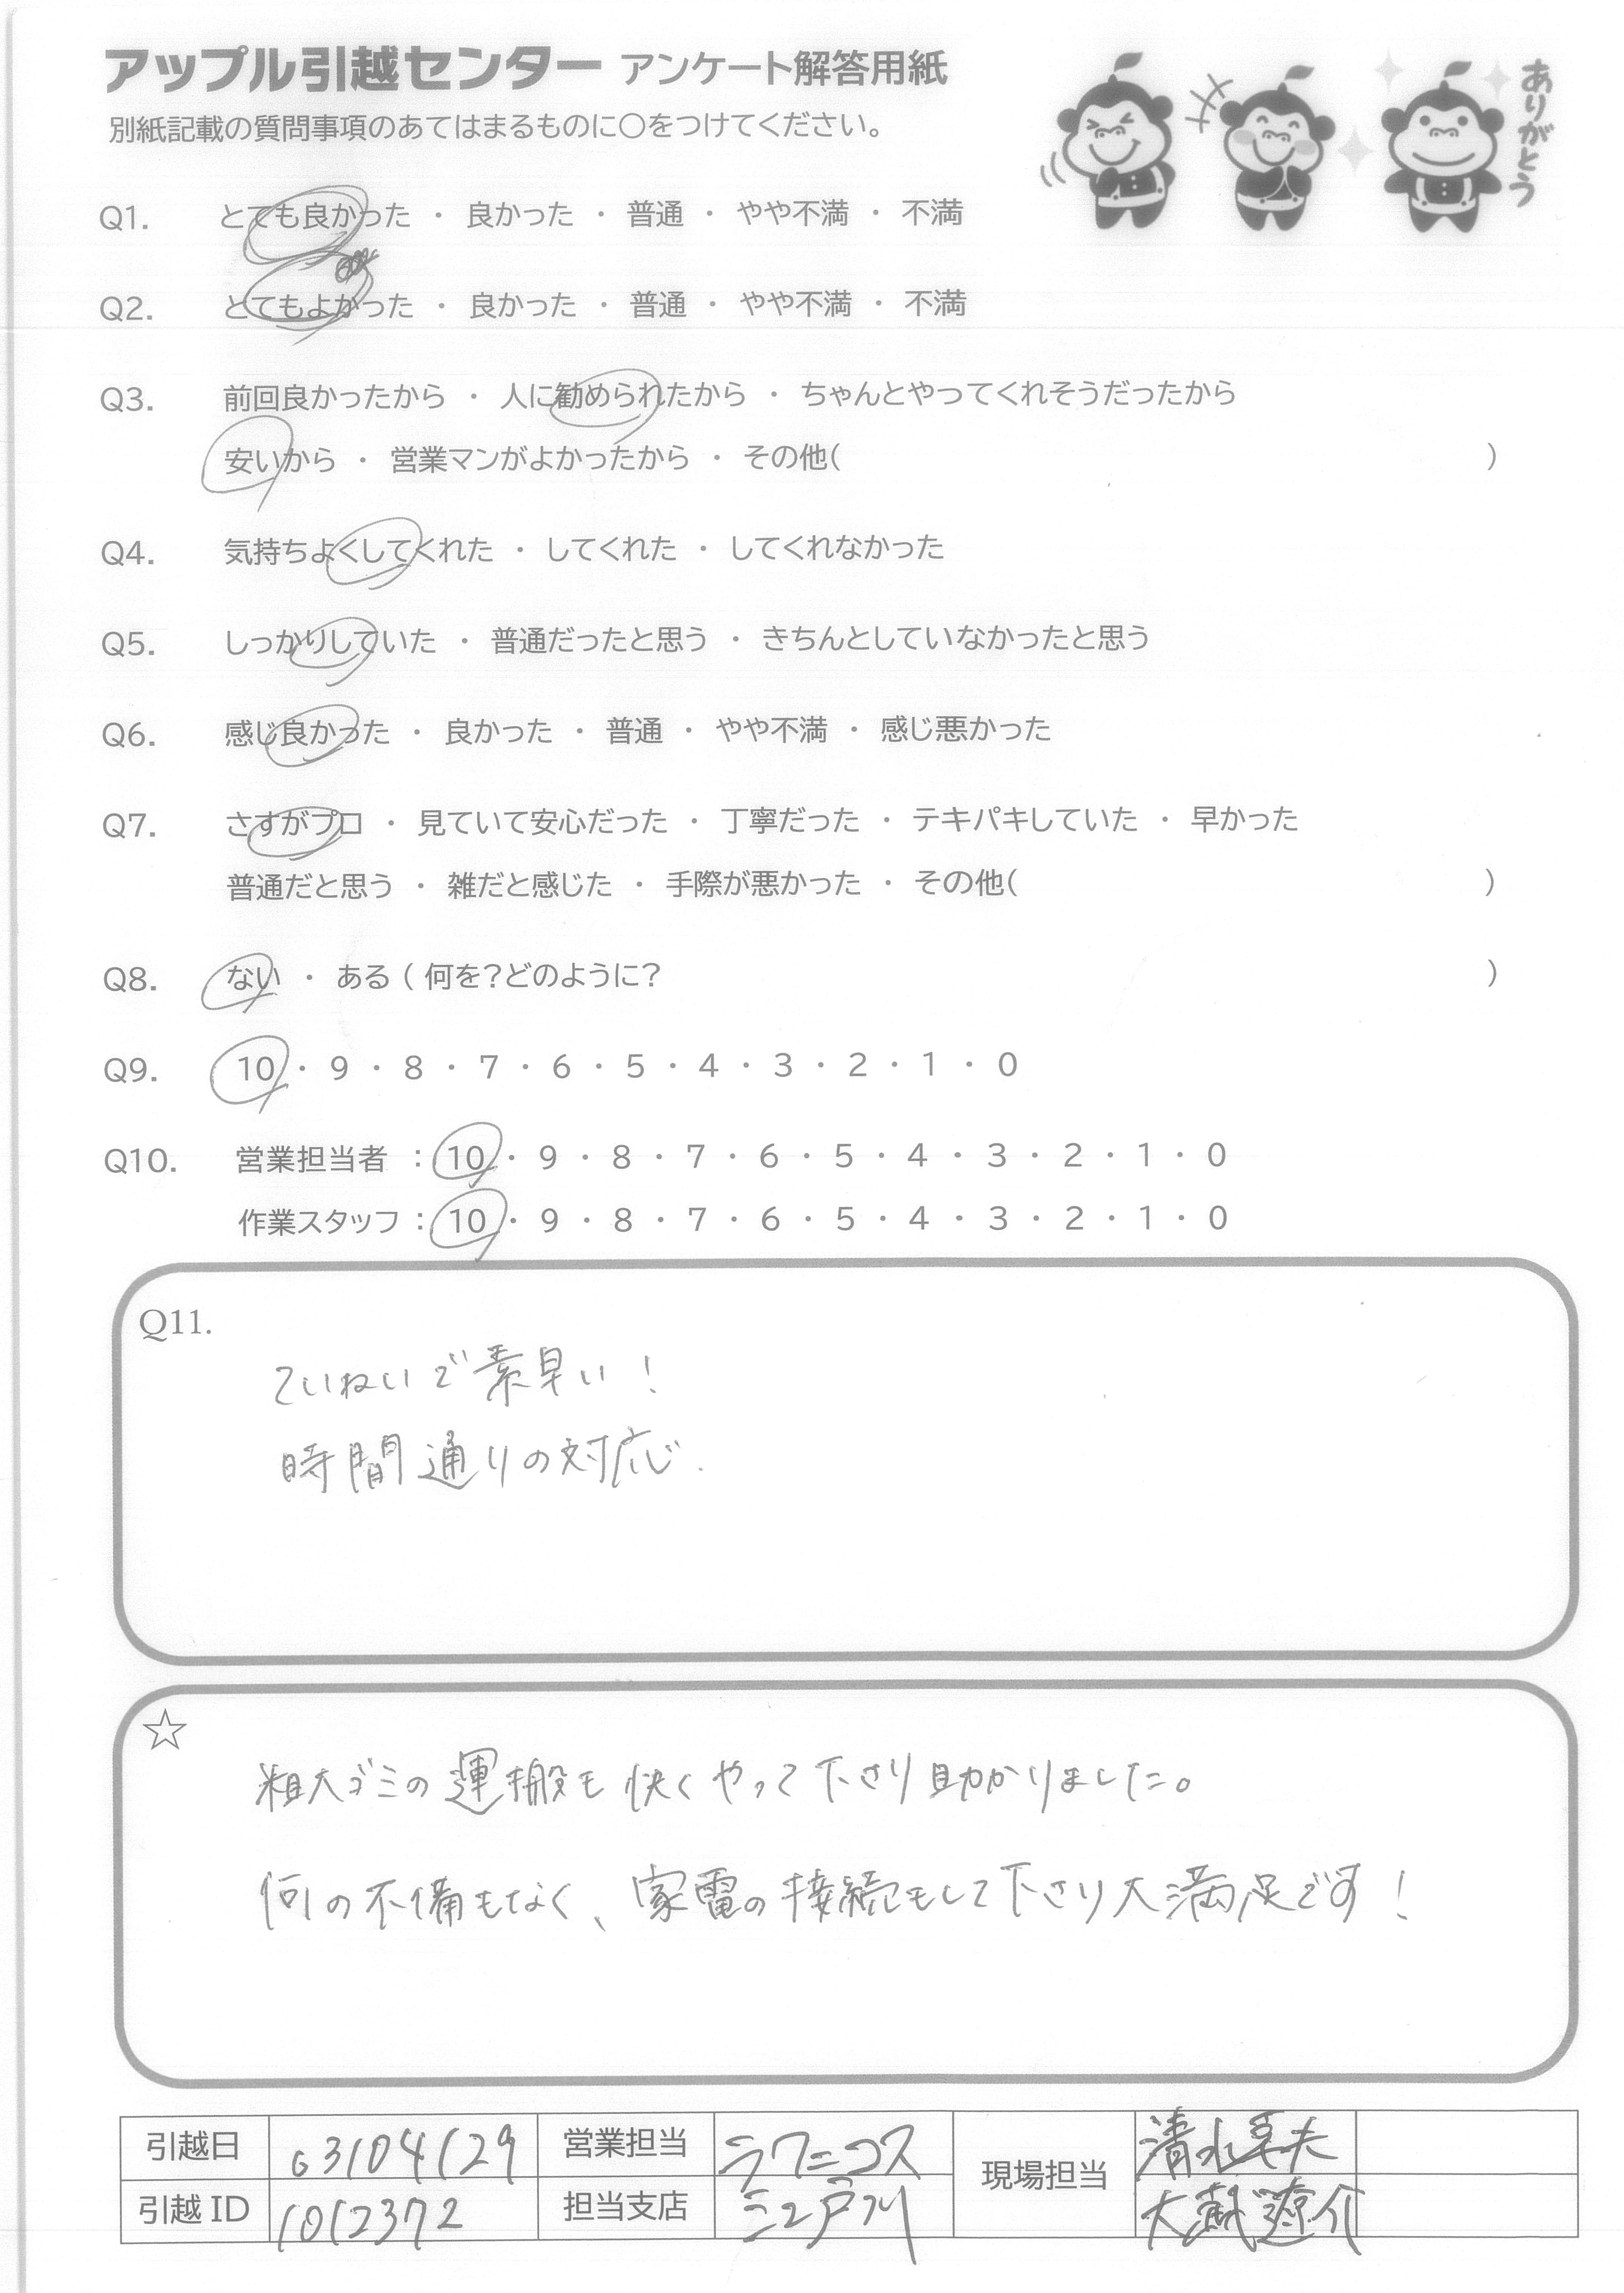 アップル引越センター アンケート解答用紙
別紙記載の質問事項のあてはまるものに○をつけてください。
ありがとう
Q1. とても良かった ・ 良かった ・ 普通 ・ やや不満 ・ 不満
Q2. とてもよかった ・ 良かった ・ 普通 ・ やや不満 ・ 不満
Q3. 前回良かったから ・ 人に勧められたから ・ ちゃんとやってくれそうだったから
安いから ・ 営業マンがよかったから ・ その他( )
Q4. 気持ちよくしてくれた ・ してくれた ・ してくれなかった
Q5. しっかりしていた ・ 普通だったと思う ・ きちんとしていなかったと思う
Q6. 感じ良かった ・ 良かった ・ 普通 ・ やや不満 ・ 感じ悪かった
Q7. さすがプロ ・ 見ていて安心だった ・ 丁寧だった ・ テキパキしていた ・ 早かった
普通だと思う ・ 雑だと感じた ・ 手際が悪かった ・ その他( )
Q8. ない ・ ある ( 何を?どのように? )
Q9. 10 ・ 9 ・ 8 ・ 7 ・ 6 ・ 5 ・ 4 ・ 3 ・ 2 ・ 1 ・ 0
Q10. 営業担当者 : 10 ・ 9 ・ 8 ・ 7 ・ 6 ・ 5 ・ 4 ・ 3 ・ 2 ・ 1 ・ 0
作業スタッフ : 10 ・ 9 ・ 8 ・ 7 ・ 6 ・ 5 ・ 4 ・ 3 ・ 2 ・ 1 ・ 0
Q11.
ていねいで素早い!
時間通りの対応.
☆
粗大ゴミの運搬も快くやって下さり助かりました。
何の不備もなく、家電の接続もして下さり大満足です!
引越日 営業担当 現場担当 清水
引越ID 1012372 担当支店 江戸川